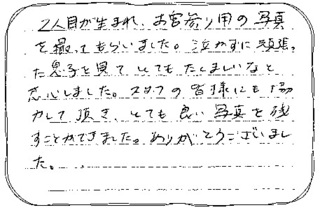 2人目が生まれ、お宮参り用の写真
を撮ってもらいました。泣かずに頑張っ
た息子を見てとてもたくましいなと
感心しました。スタッフの皆様にも協
力して頂き、とても良い写真を残
すことができました。ありがとうございまし
た。